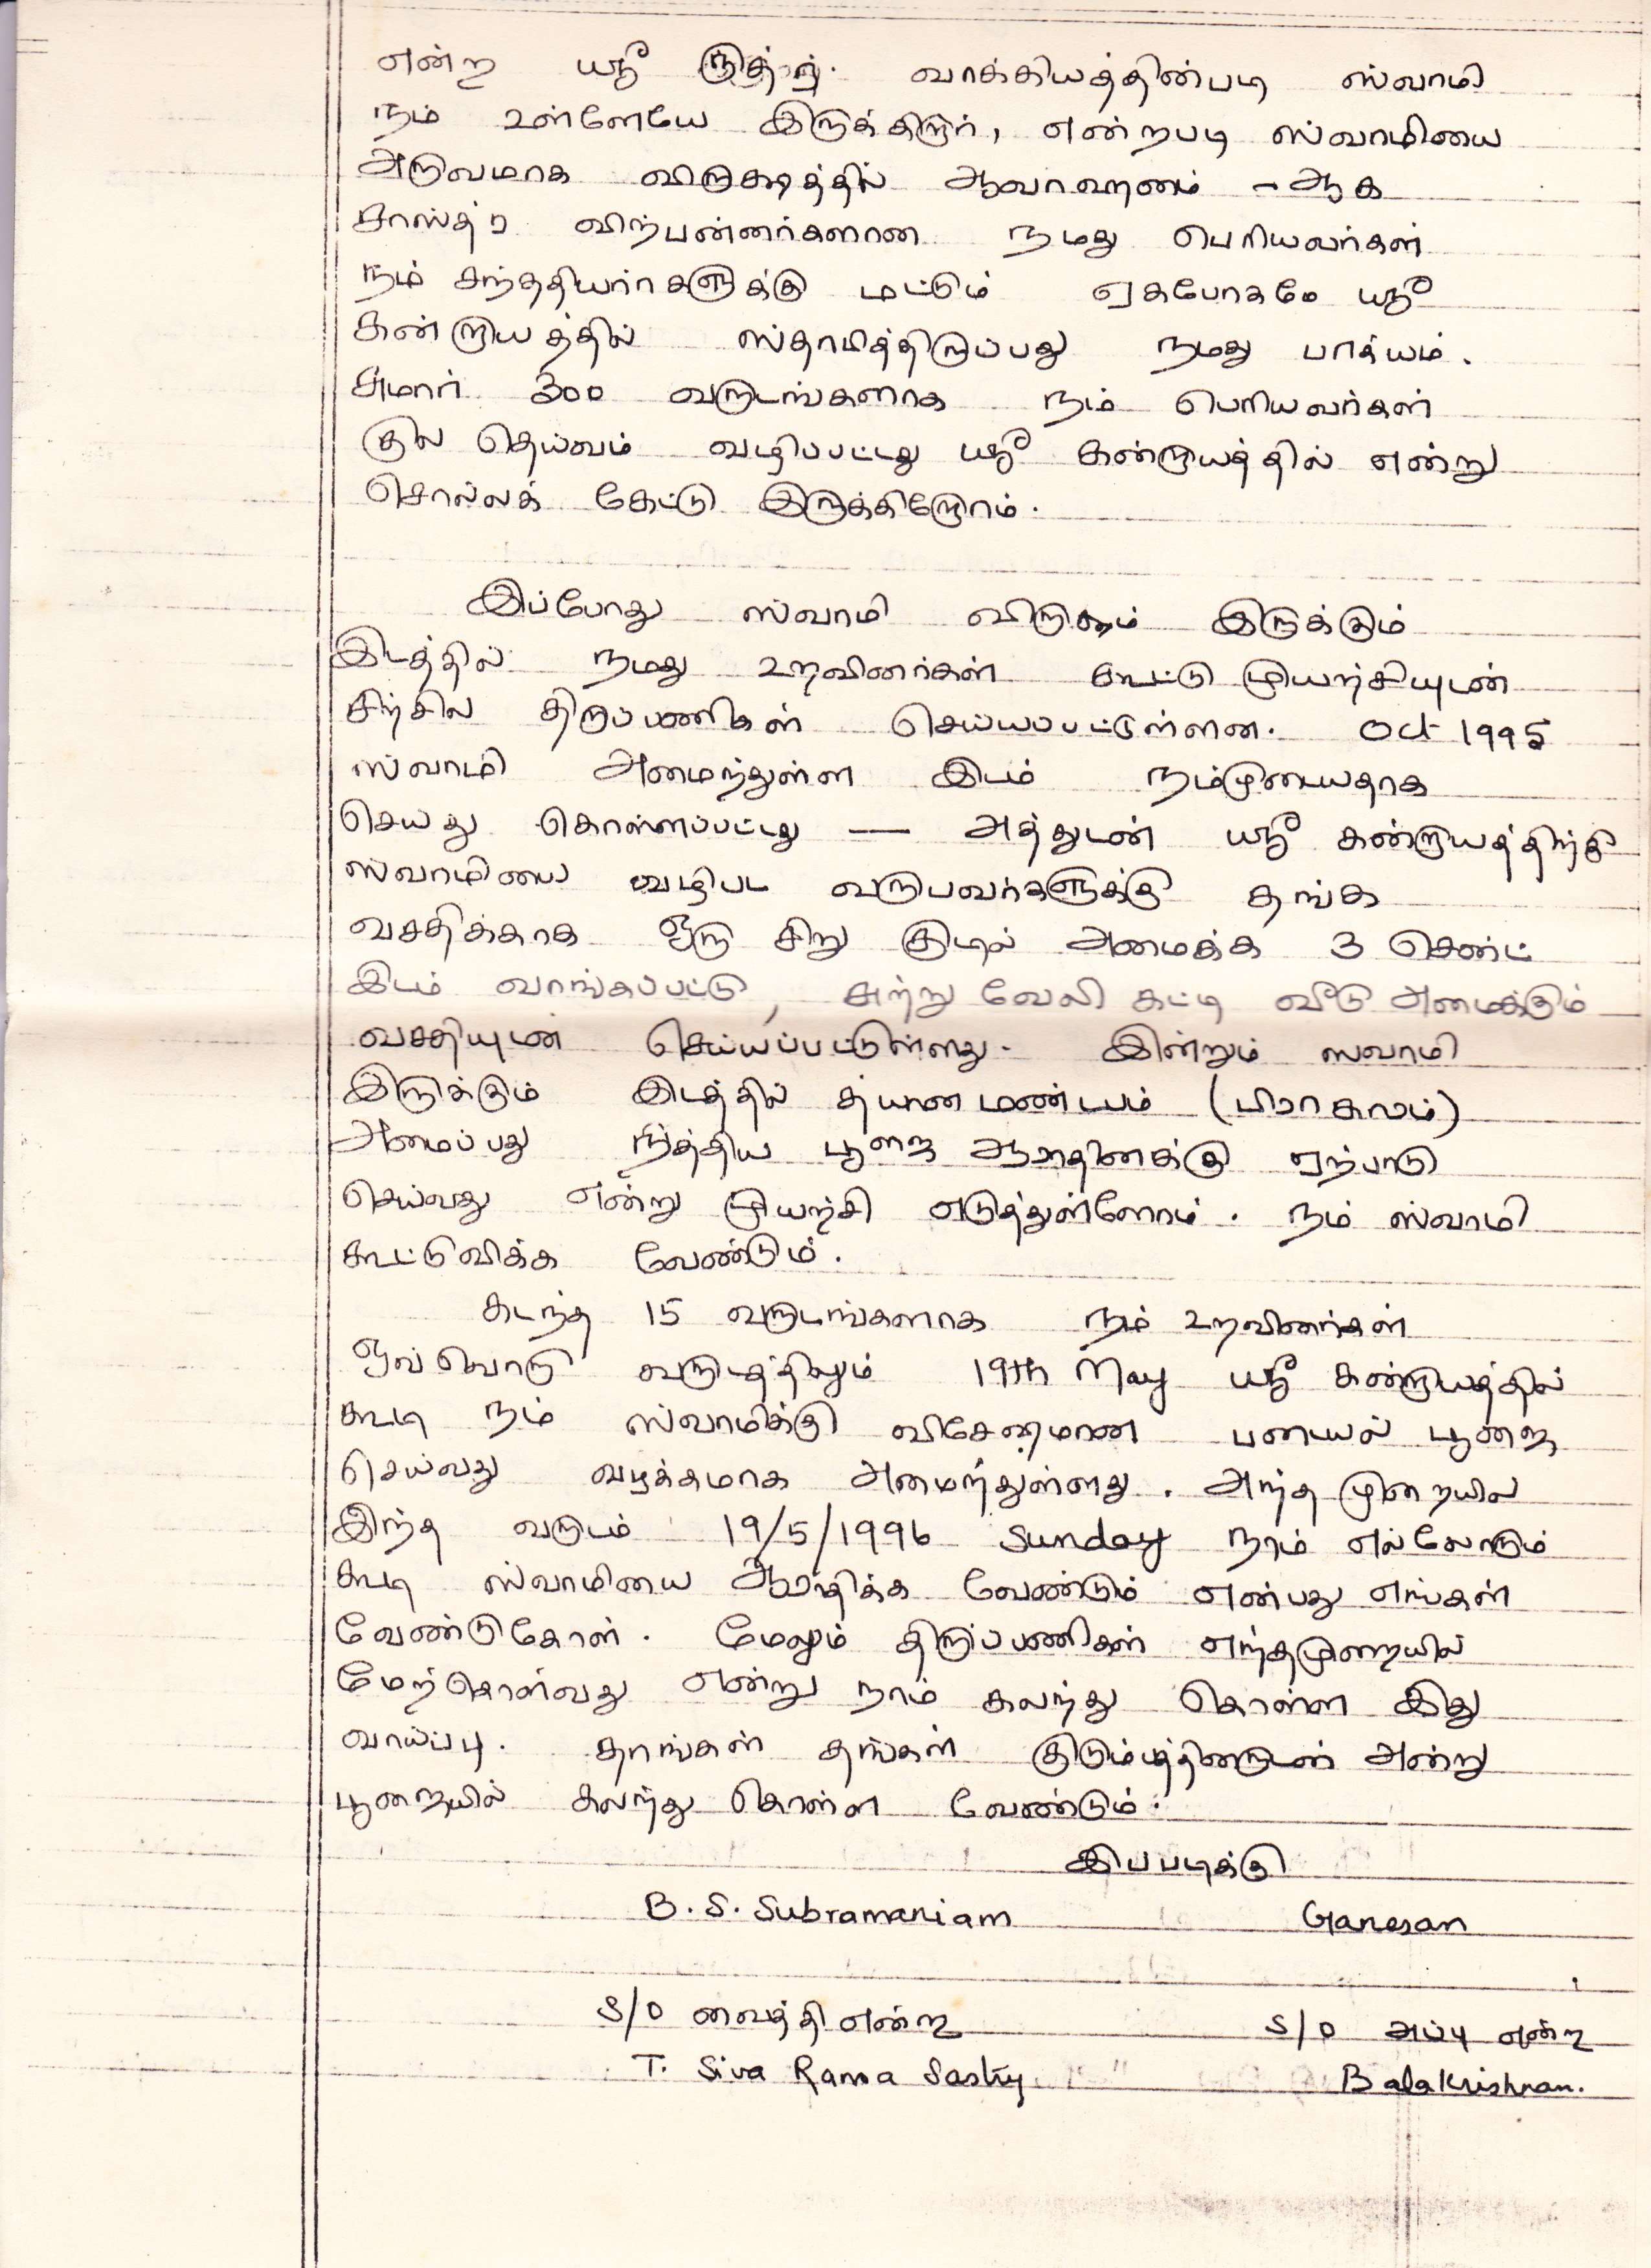 என்ற ஸ்ரீ ருத்ர. வாக்கியத்தின்படி ஸ்வாமி
நம் உள்ளேயே இருக்கிறார், என்றபடி ஸ்வாமியை
அருவமாக விருக்ஷத்தில் ஆவாஹனம் - ஆக
சாஸ்த்ர விற்பன்னர்களான நமது பெரியவர்கள்
நம் சந்ததியார்களுக்கு மட்டும் ஏகபோகமே ஸ்ரீ
கன்றாயத்தில் ஸ்தாபித்திருப்பது நமது பாக்யம்.
சுமார் 300 வருடங்களாக நம் பெரியவர்கள்
குல தெய்வம் வழிபட்டது ஸ்ரீ கன்றாயத்தில் என்று
சொல்லக் கேட்டு இருக்கிறோம்.
இப்போது ஸ்வாமி விருக்ஷம் இருக்கும்
இடத்தில் நமது உறவினர்கள் கூட்டு முயற்சியுடன்
சிற்சில திருப்பணிகள் செய்யப்பட்டுள்ளன. Oct 1995
ஸ்வாமி அமைந்துள்ள இடம் நம்முடையதாக
செய்து கொள்ளப்பட்டது — அத்துடன் ஸ்ரீ கன்றாயத்திற்கு
ஸ்வாமியை வழிபட வருபவர்களுக்கு தங்க
வசதிக்காக ஒரு சிறு குடில் அமைக்க 3 செண்ட்
இடம் வாங்கப்பட்டு, சுற்று வேலி கட்டி வீடு அமைக்கும்
வசதியுடன் செய்யப்பட்டுள்ளது. இன்றும் ஸ்வாமி
இருக்கும் இடத்தில் த்யான மண்டபம் (பிராகாரம்)
அமைப்பது நித்திய பூஜை ஆராதனைக்கு ஏற்பாடு
செய்வது என்று முயற்சி எடுத்துள்ளோம். நம் ஸ்வாமி
கூட்டுவிக்க வேண்டும்.
கடந்த 15 வருடங்களாக நம் உறவினர்கள்
ஒவ்வொரு வருடத்திலும் 19th May ஸ்ரீ கன்றாயத்தில்
கூடி நம் ஸ்வாமிக்கு விசேஷமான படையல் பூஜை
செய்வது வழக்கமாக அமைந்துள்ளது. அந்த முறையில்
இந்த வருடம் 19/5/1996 Sunday நாம் எல்லோரும்
கூடி ஸ்வாமியை ஆராதிக்க வேண்டும் என்பது எங்கள்
வேண்டுகோள். மேலும் திருப்பணிகள் எந்தமுறையில்
மேற்கொள்வது என்று நாம் கலந்து கொள்ள இது
வாய்ப்பு. தாங்கள் தங்கள் குடும்பத்தினருடன் அன்று
பூஜையில் கலந்து கொள்ள வேண்டும்.
இப்படிக்கு
B. S. Subramaniam Ganesan
S/O வைத்தி என்ற S/O அப்பு என்ற
T. Siva Rama Sastry Balakrishnan.